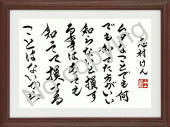 志村けん
なことでも何
でも た方がいい
知らないと損す
る事はあっても
知ってて損する
ことはないから
No copying